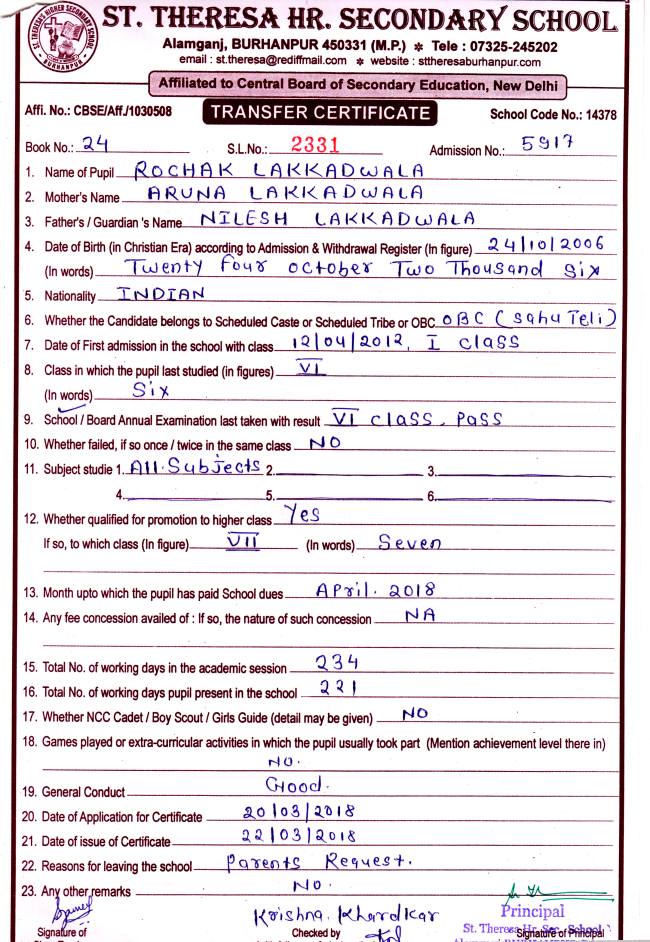 ST. THERESA HR. SECONDARY SCHOOL
Alamganj, BURHANPUR 450331 (M.P.) * Tele : 07325-245202
email : st.theresa@rediffmail.com * website : sttheresaburhanpur.com
Affiliated to Central Board of Secondary Education, New Delhi
Affi. No.: CBSE/Aff./1030508 TRANSFER CERTIFICATE School Code No.: 14378
Book No.: 24 S.L.No.: 2331 Admission No.: 5917
1. Name of Pupil ROCHAK LAKKADWALA
2. Mother's Name ARUNA LAKKADWALA
3. Father's / Guardian 's Name NILESH LAKKADWALA
4. Date of Birth (in Christian Era) according to Admission & Withdrawal Register (In figure) 24/10/2006
(In words) Twenty Four October Two Thousand Six
5. Nationality INDIAN
6. Whether the Candidate belongs to Scheduled Caste or Scheduled Tribe or OBC OBC (Sahu Teli)
7. Date of First admission in the school with class 12/04/2012, I class
8. Class in which the pupil last studied (in figures) VI
(In words) Six
9. School / Board Annual Examination last taken with result VI class, Pass
10. Whether failed, if so once / twice in the same class NO
11. Subject studie 1. All Subjects 2. 3.
4. 5. 6.
12. Whether qualified for promotion to higher class Yes
If so, to which class (In figure) VII (In words) Seven
13. Month upto which the pupil has paid School dues April. 2018
14. Any fee concession availed of : If so, the nature of such concession NA
15. Total No. of working days in the academic session 234
16. Total No. of working days pupil present in the school 221
17. Whether NCC Cadet / Boy Scout / Girls Guide (detail may be given) NO
18. Games played or extra-curricular activities in which the pupil usually took part (Mention achievement level there in)
NO.
19. General Conduct Good.
20. Date of Application for Certificate 20/03/2018
21. Date of issue of Certificate 22/03/2018
22. Reasons for leaving the school Parents Request.
23. Any other remarks NO.
Krishna. Khardkar Principal
Signature of Checked by St. Theresa Hr. Sec. School Signature of Principal